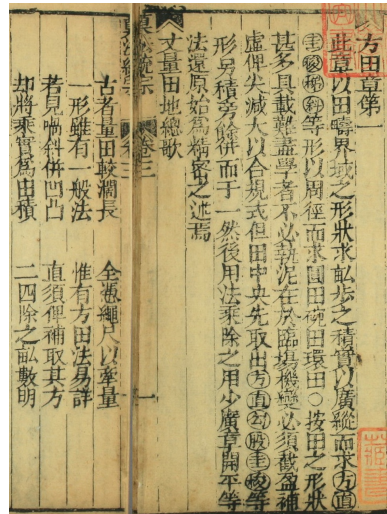 方田章第一
此章以田疇界域之形狀求畝步之積實以廣縱而求方直
圭梭梯斜等形以周徑而求圓田碗田環田○按田之形狀
甚多具載難盡學者不必執泥在於臨場機變必須截盈補
虛俾尖減大以合規式但田中央先取出方直勾股圭梭等
形另積旁餘併而于一然後用法乘除之用少廣章開平等
法還原始為精密之述焉
丈量田地總歌
算法統宗 卷三 一
古者量田較濶長 全憑繩尺以牽量
一形雖有一般法 惟有方田法易詳
若見喎斜併凹凸 直須俾補取其方
却將乘實為田積 二四除之畝數明